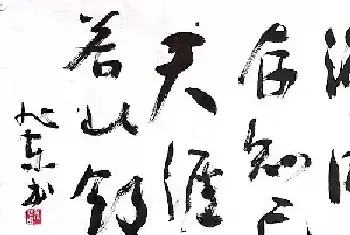 海内
存知己
天涯
若比邻
东书